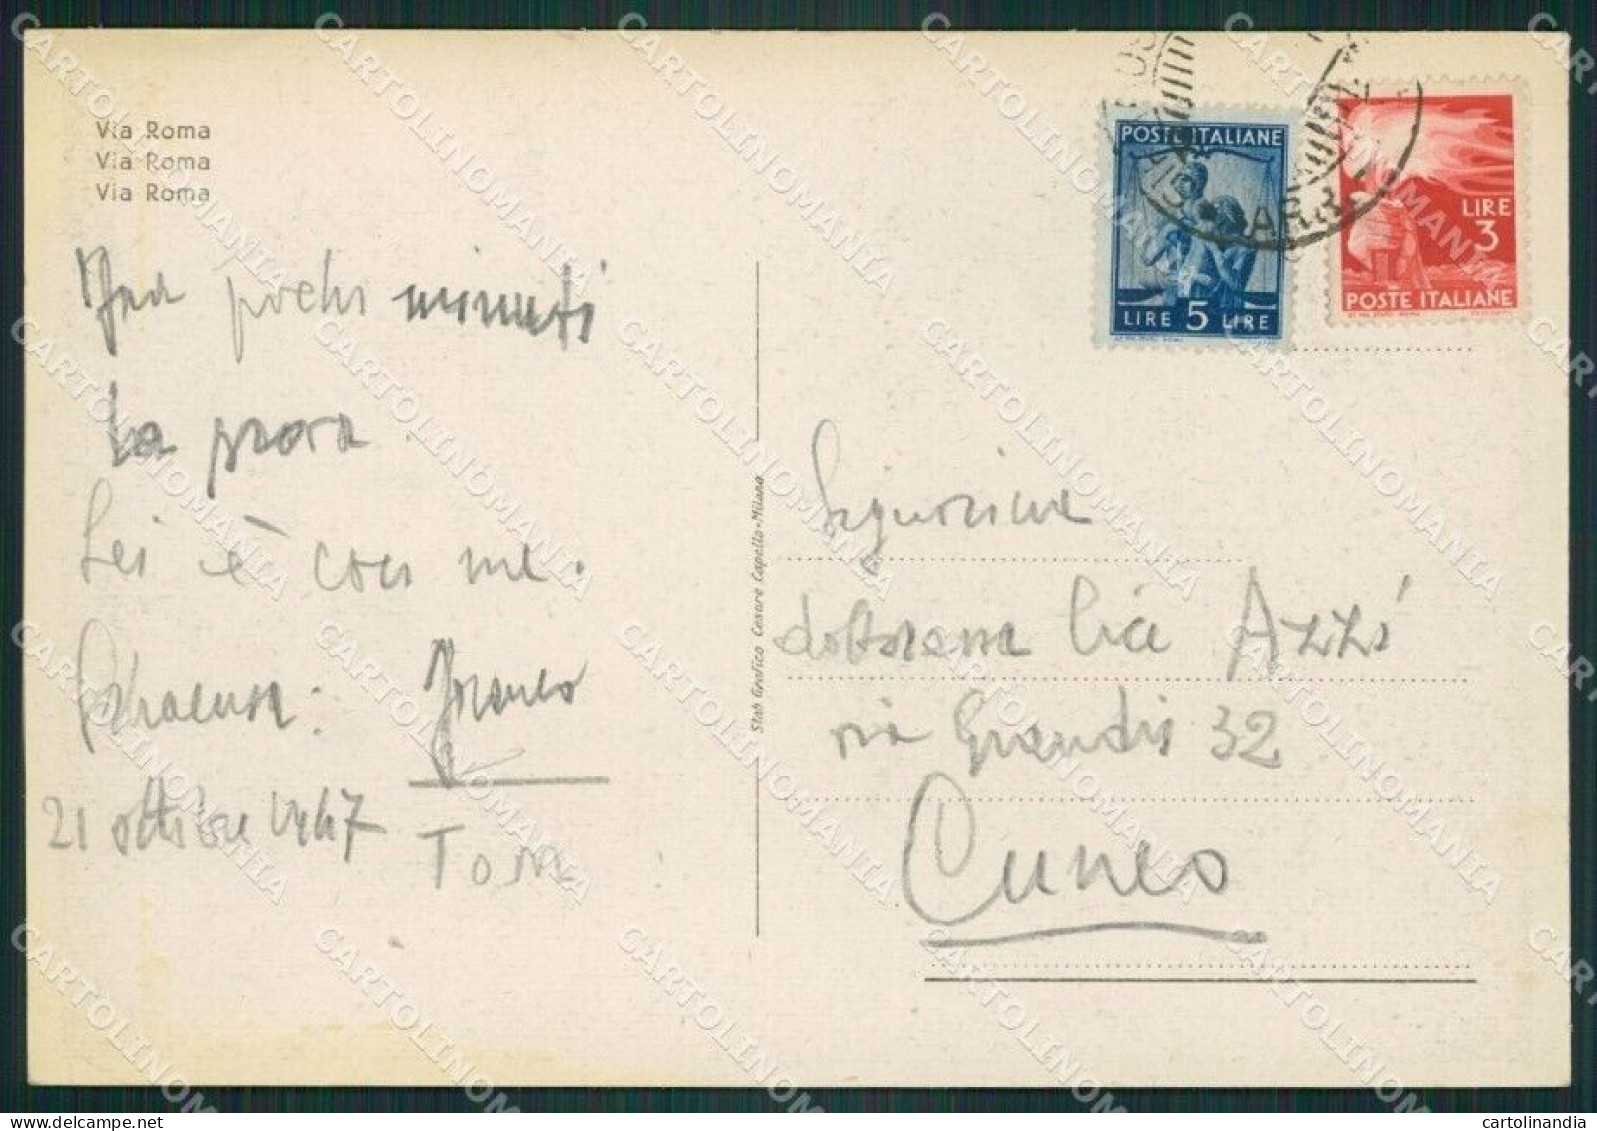 Via Roma
Via Roma
Via Roma
Fra pochi minuti
la prova
Lei è con me.
Franco
21 ottobre 1947
Stab Grafico Cesare Capello-Milano
POSTE ITALIANE
LIRE 5 LIRE
LIRE
3
POSTE ITALIANE
ARR.
Signorina
dottoressa Lia Azzi
via Grandis 32
Cuneo
CARTOLINOMANIA
cartolinandia